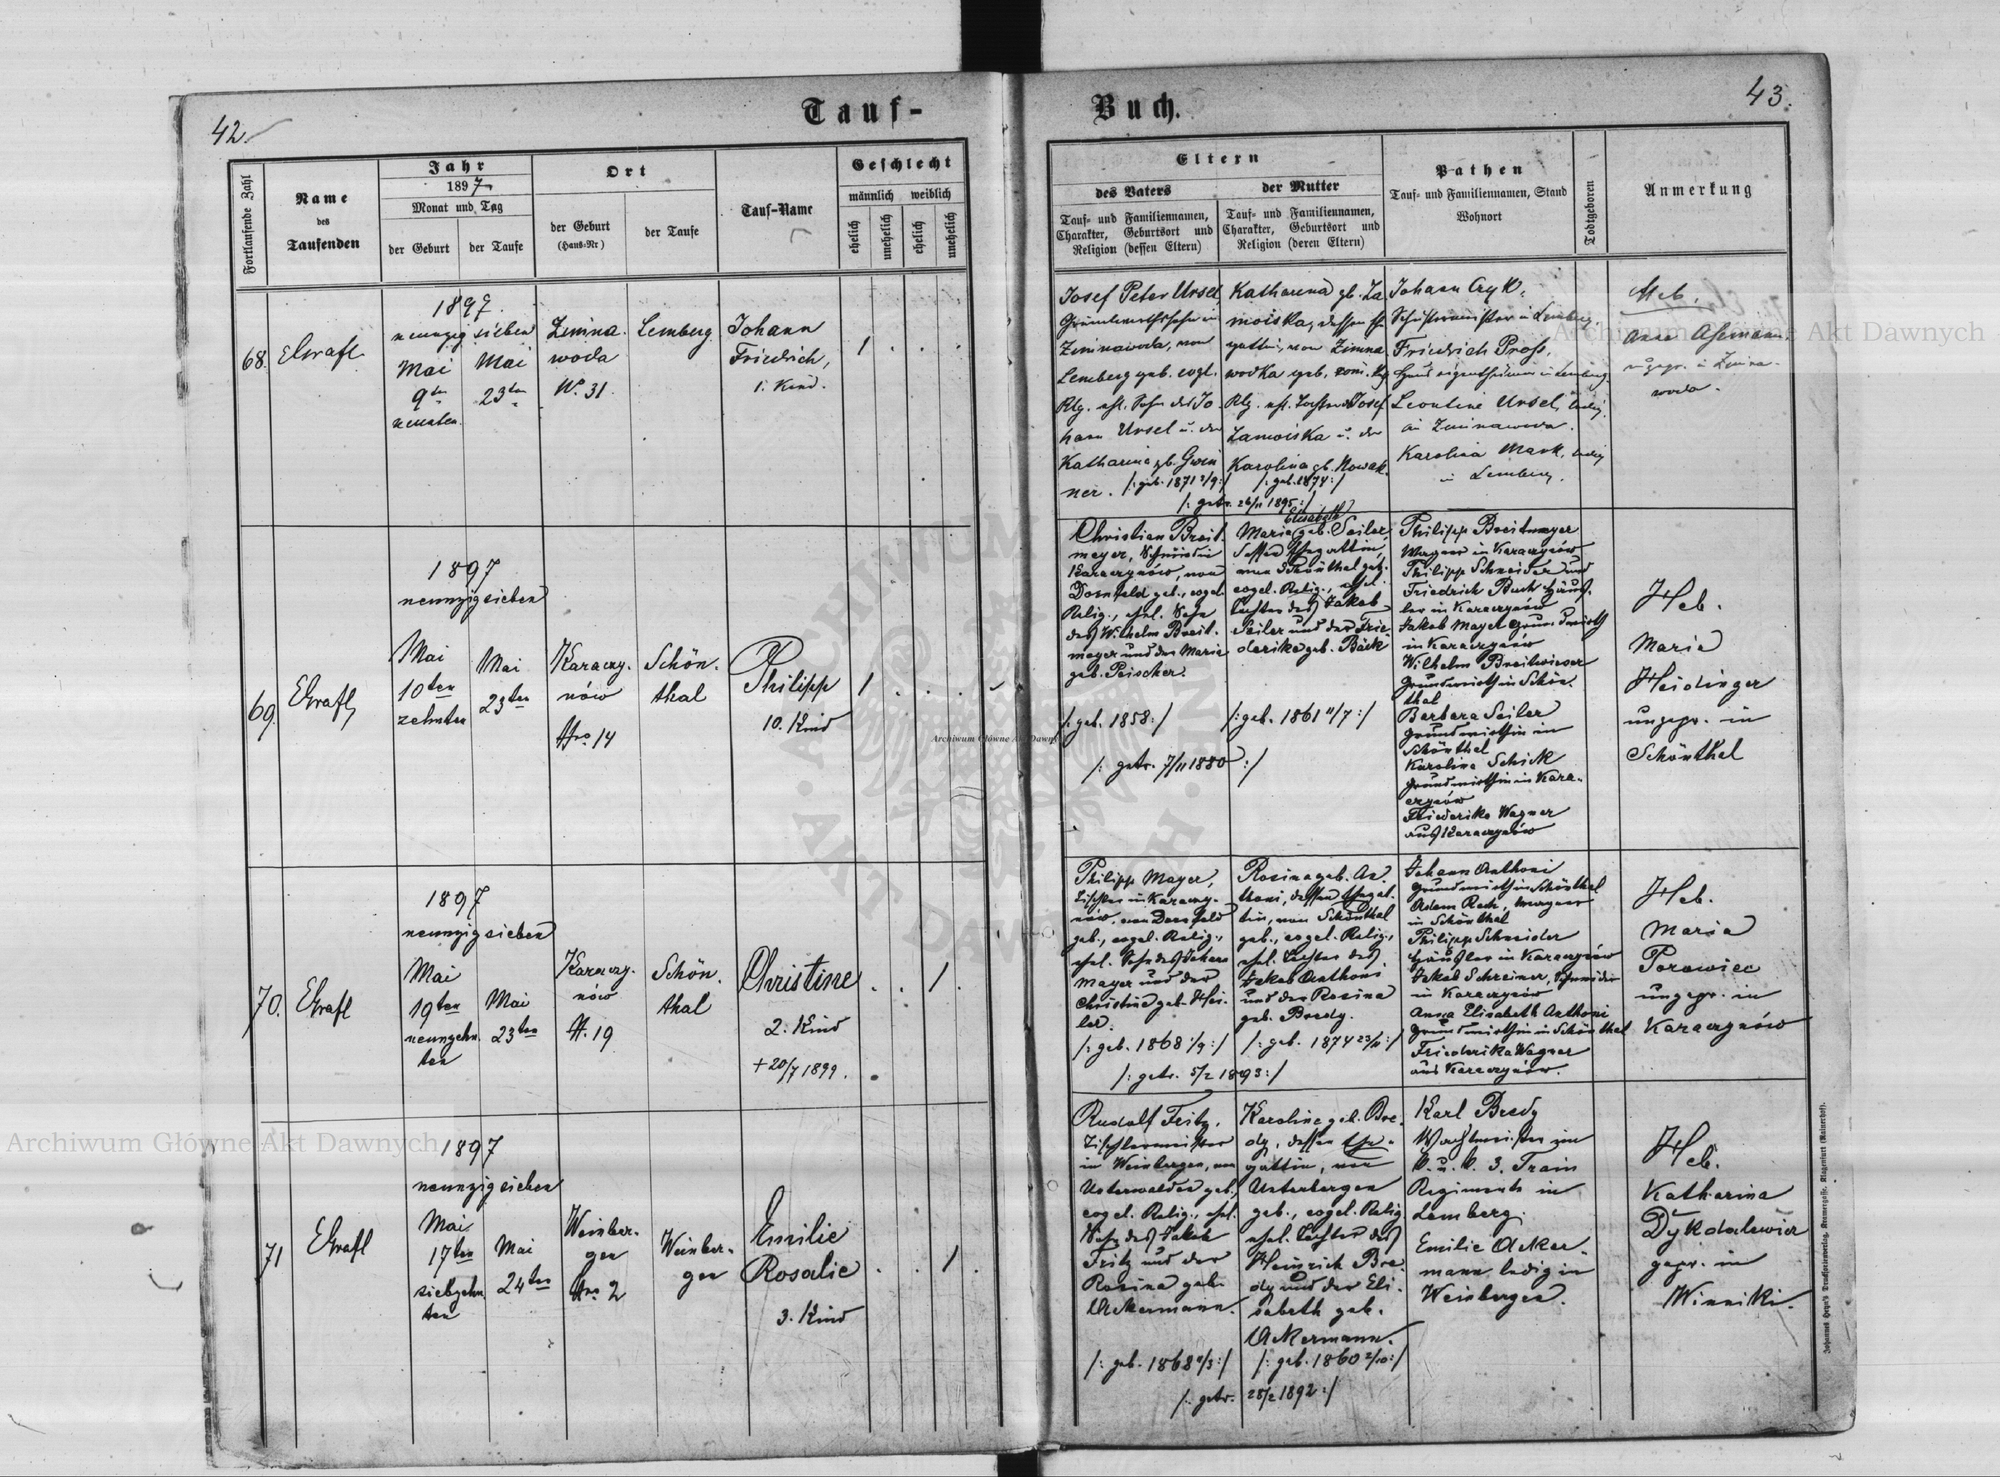 42.
Tauf-
Fortlaufende Zahl
Name
des
Taufenden
Jahr
1897
Monat und Tag
der Geburt
der Taufe
Ort
der Geburt
(Haus-Nr)
der Taufe
Tauf-Name
Geschlecht
männlich weiblich
ehelich
unehelich
ehelich
unehelich
68.
1897.
neunzig sieben
Mai
9ten
neunten
Mai
23ten
Zimna
woda
No. 31
Lemberg
Johann
Friedrich,
1. Kind.
1
69.
1897
neunzigsieben
Mai
10ten
zehnten
Mai
23ten
Karaczy-
nów
Nro. 14
Schön-
thal
Philipp
10. Kind
1
70.
1897
neunzigsieben
Mai
19ten
neunzehn-
ten
Mai
23ten
Karaczy-
nów
N. 19
Schön-
thal
Christine
2. Kind
+ 20/7 1899.
1
71
1897
neunzigsieben
Mai
17ten
siebzehn-
ten
Mai
24ten
Weinber-
gen
Nro. 2
Weinber-
gen
Emilie
Rosalie
3. Kind
1
43.
Buch.
Eltern
des Vaters
Tauf- und Familiennamen,
Charakter, Geburtsort und
Religion (dessen Eltern)
der Mutter
Tauf- und Familiennamen,
Charakter, Geburtsort und
Religion (deren Eltern)
Pathen
Tauf- und Familiennamen, Stand
Wohnort
Todtgeboren
Anmerkung
Josef Peter Ursel,
Grundwirthssohn in
Zimnawoda, von
Lemberg geb. evgl.
Rlg. ehl. Sohn des Jo-
hann Ursel u. der
Katharina gb. Gwin
ner. /: geb. 1871
Katharina gb. Za
moiska, dessen Eh
gattin, von Zimna
wodka geb.
Rlg. ehl. Tochter des Josef
Zamoiska u. der
Karolina gb. Nowak.
/: geb. 1874 :/
/: getr. 26/11 1895 :/
Johann
Schustermeister in Lemberg.
Friedrich Pross,
Hauseigenthümer in Lemberg.
Leontine Ursel, ledig,
in Zimnawoda.
Karolina Mark, ledig
in Lemberg.
Heb.
Anna
ungepr. in Zimna-
woda.
Christian Breit-
meyer, Schmied in
Karaczynów, von
Dornfeld geb., evgel.
Relig., ehel. Sohn
des Wilhelm Breit-
meyer und der Maria
geb. Peischer.
/: geb. 1858 :/
Elisabeth
Maria geb. Seiler,
dessen Ehegattin,
von Schönthal geb.
evgel. Relig., ehel.
Tochter des Jakob
Seiler und der Frie-
derike geb. Bäck
/: geb. 1861 11/7 :/
/: getr. 7/11 1880 :/
Philipp Breitmeyer
Wagner in Karaczynów
Philipp Schneider und
Friedrich Buck Häus-
ler in Karaczynów
Jakob Mayer Grundwirth
in Karaczynów
Wilhelm Breitwieser
Grundwirth in Schön-
thal
Barbara Seiler
Grundwirthin in
Schönthal
Karolina Schick
Grundwirthin in Kara-
czynów
Friederike Wagner
aus Karaczynów
Heb.
Maria
Heidinger
ungepr. in
Schönthal
Philipp Mayer,
Tischler in Karaczy-
nów, von Dornfeld
geb., evgel. Relig.,
ehel. Sohn des Johann
Mayer und der
Christina geb. Hei-
ler.
/: geb. 1868 1/9 :/
Rosina geb. An-
thoni, dessen Ehegat-
tin, von Schönthal
geb., evgel. Relig.,
ehel. Tochter des
Jakob Anthoni
und der Rosina
geb. Bredy.
/: geb. 1874 23/11 :/
/: getr. 5/2 1893 :/
Johann Anthoni
Grundwirth in Schönthal
Adam Rech, Wagner
in Schönthal
Philipp Schneider
Häusler in Karaczynów
Jakob Schreiner, Schneider
in Karaczynów
Anna Elisabeth Anthoni
Grundwirthin in Schönthal
Friederika Wagner
aus Karaczynów.
Heb.
Maria
Porowiec
ungepr. in
Karaczynów
Rudolf Fritz,
Tischlermeister
in Weinbergen, von
Unterwalden geb.,
evgel. Relig., ehel.
Sohn des Jakob
Fritz und der
Rosina geb.
Ackermann.
/: geb. 1868 11/3 :/
Karoline geb. Bre-
dy, dessen Ehe-
gattin, von
Unterbergen
geb., evgel. Relig
ehel. Tochter des
Heinrich Bre-
dy und der Eli-
sabeth geb.
Ackermann.
/: geb. 1860 2/10 :/
/: getr. 28/2 1892 :/
Karl Bredy
Wachtmeister im
k. u. k. 3. Train
Regimente in
Lemberg.
Emilie Acker-
mann ledig in
Weinbergen.
Heb.
Katharina
Dykdalewicz
gepr. in
Winniki.
Archiwum Główne Akt Dawnych
Archiwum Główne Akt Dawnych
Archiwum Główne Akt Dawnych